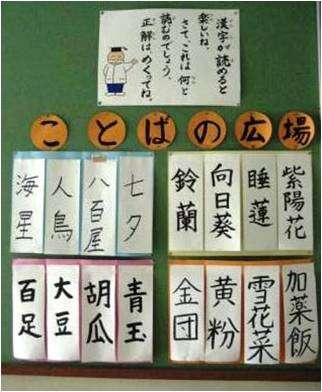 漢字が読めると
楽しいね。
さて、これは何と
読むのでしょう。
正解は、めくってね。
ことばの広場
紫陽花
睡蓮
向日葵
鈴蘭
七夕
八百屋
人鳥
海星
加薬飯
雪花菜
黄粉
金団
青玉
胡瓜
大豆
百足